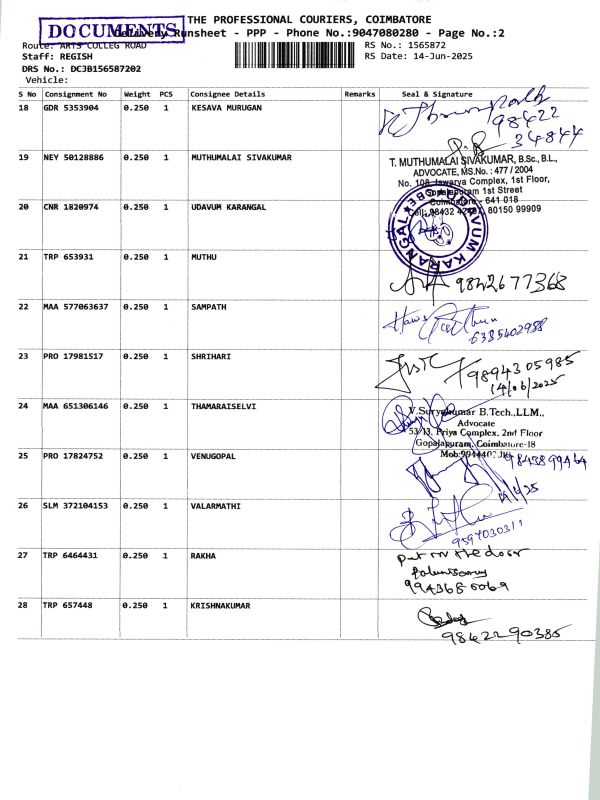 THE PROFESSIONAL COURIERS, COIMBATORE
DOCUMENTS
Delivery Runsheet - PPP - Phone No.:9047080280 - Page No.:2
Route: ARTS COLLEG ROAD
RS No.: 1565872
Staff: REGISH
RS Date: 14-Jun-2025
DRS No.: DCJB156587202
Vehicle:
S No Consignment No Weight PCS Consignee Details Remarks Seal & Signature
18 GDR 5353904 0.250 1 KESAVA MURUGAN
98422
34844
19 NEY 50128886 0.250 1 MUTHUMALAI SIVAKUMAR
T. MUTHUMALAI SIVAKUMAR, B.Sc., B.L.,
ADVOCATE, MS.No.: 477 / 2004
No. 108, Iswarya Complex, 1st Floor,
Gopalapuram 1st Street
Coimbatore - 641 018
80150 99909
20 CNR 1820974 0.250 1 UDAVUM KARANGAL
UDAVUM KARANGAL
21 TRP 653931 0.250 1 MUTHU
9842677368
22 MAA 577063637 0.250 1 SAMPATH
6385402988
23 PRO 17981517 0.250 1 SHRIHARI
9894305985
14/06/2025
24 MAA 651306146 0.250 1 THAMARAISELVI
V.Suryakumar B.Tech.,LLM.,
Advocate
53/13, Priya Complex, 2nd Floor
Gopalapuram, Coimbatore-18
25 PRO 17824752 0.250 1 VENUGOPAL
26 SLM 372104153 0.250 1 VALARMATHI
27 TRP 6464431 0.250 1 RAKHA
put on the door
28 TRP 657448 0.250 1 KRISHNAKUMAR
9842290385